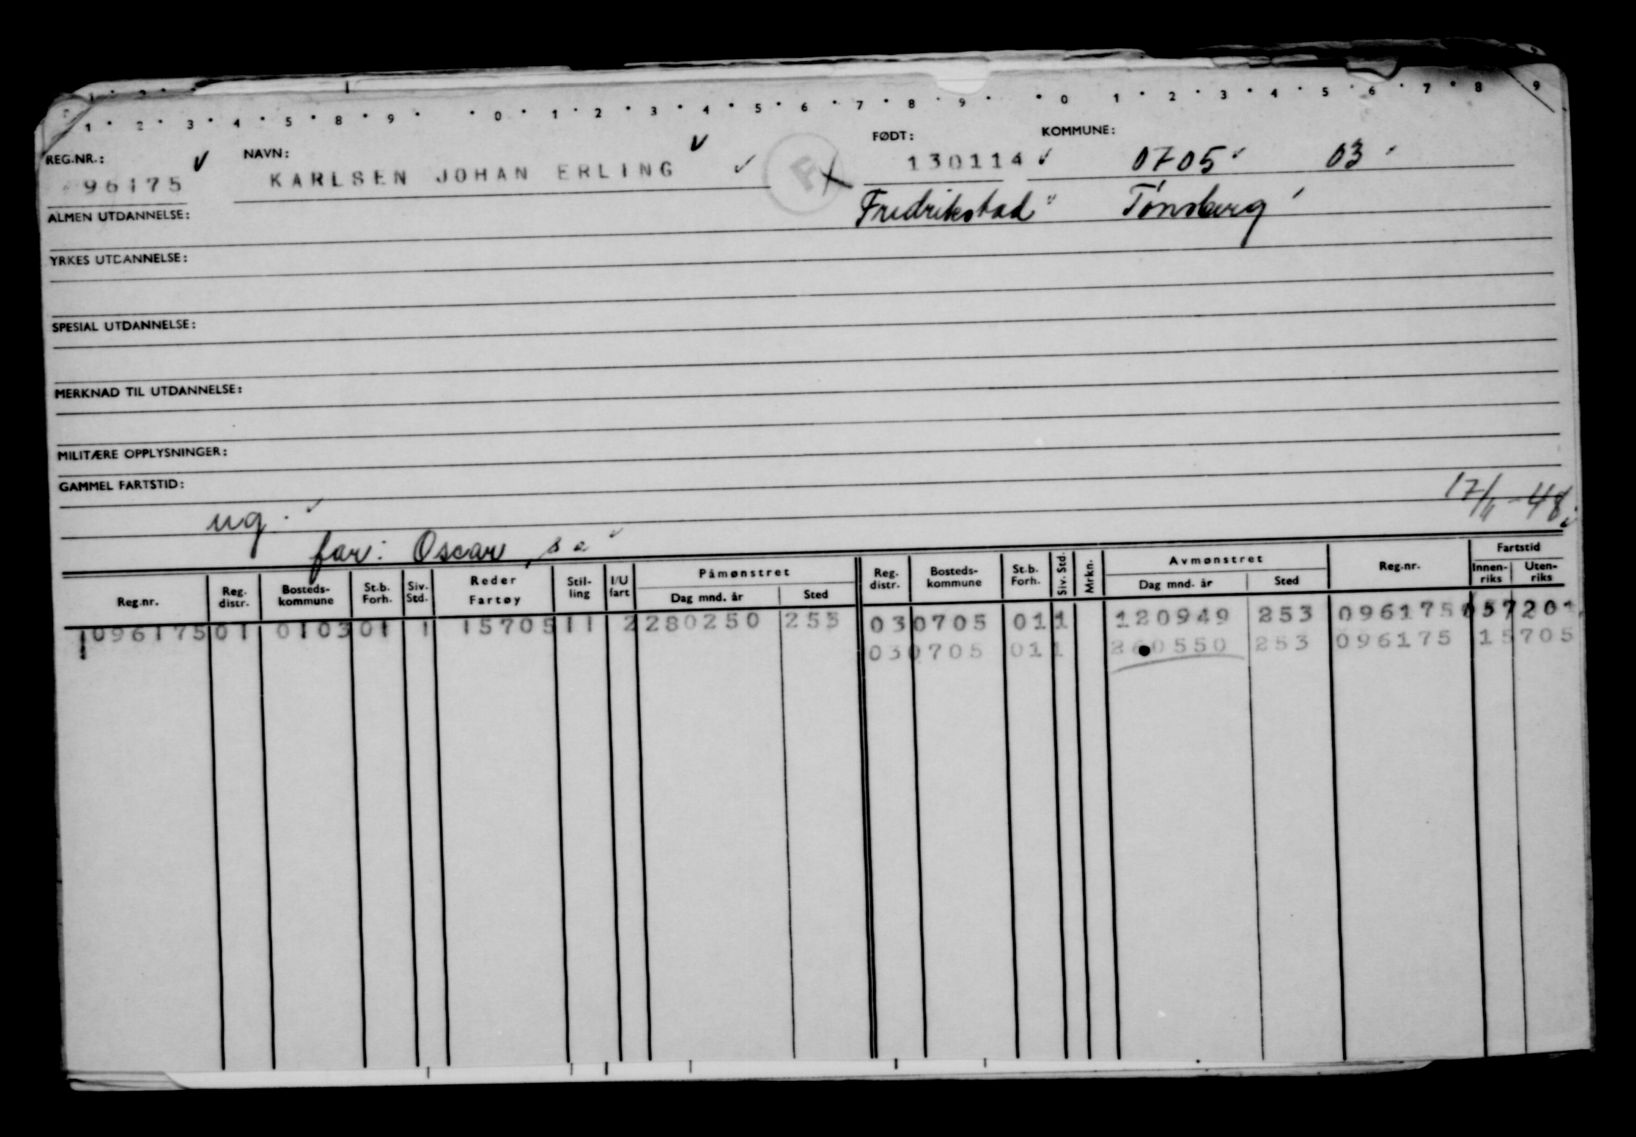 1 2 3 4 5 8 9 0 1 2 3 4 5 6 7 8 9 0 1 2 3 4 5 6 7 8 9
REG.NR.: NAVN: FØDT: KOMMUNE:
96175 KARLSEN JOHAN ERLING 130114 0705 03
ALMEN UTDANNELSE: Fredrikstad Tønsberg
YRKES UTDANNELSE:
SPESIAL UTDANNELSE:
MERKNAD TIL UTDANNELSE:
MILITÆRE OPPLYSNINGER:
GAMMEL FARTSTID:
ug. 17/11-48
far: Oscar, s a
Reg.nr. Reg. distr. Bosteds-kommune St.b. Forh. Siv. Std. Reder Fartøy Stil-ling I/U fart Påmønstret Dag mnd. år Sted Reg. distr. Bosteds-kommune St.b. Forh. Siv. Std. Mrkn. Avmønstret Dag mnd. år Sted Reg.nr. Fartstid Innen-riks Uten-riks
096175 01 0103 01 1 15705 11 2 280250 253 03 0705 01 1 120949 253 096175
03 0705 01 1 253 096175 15705